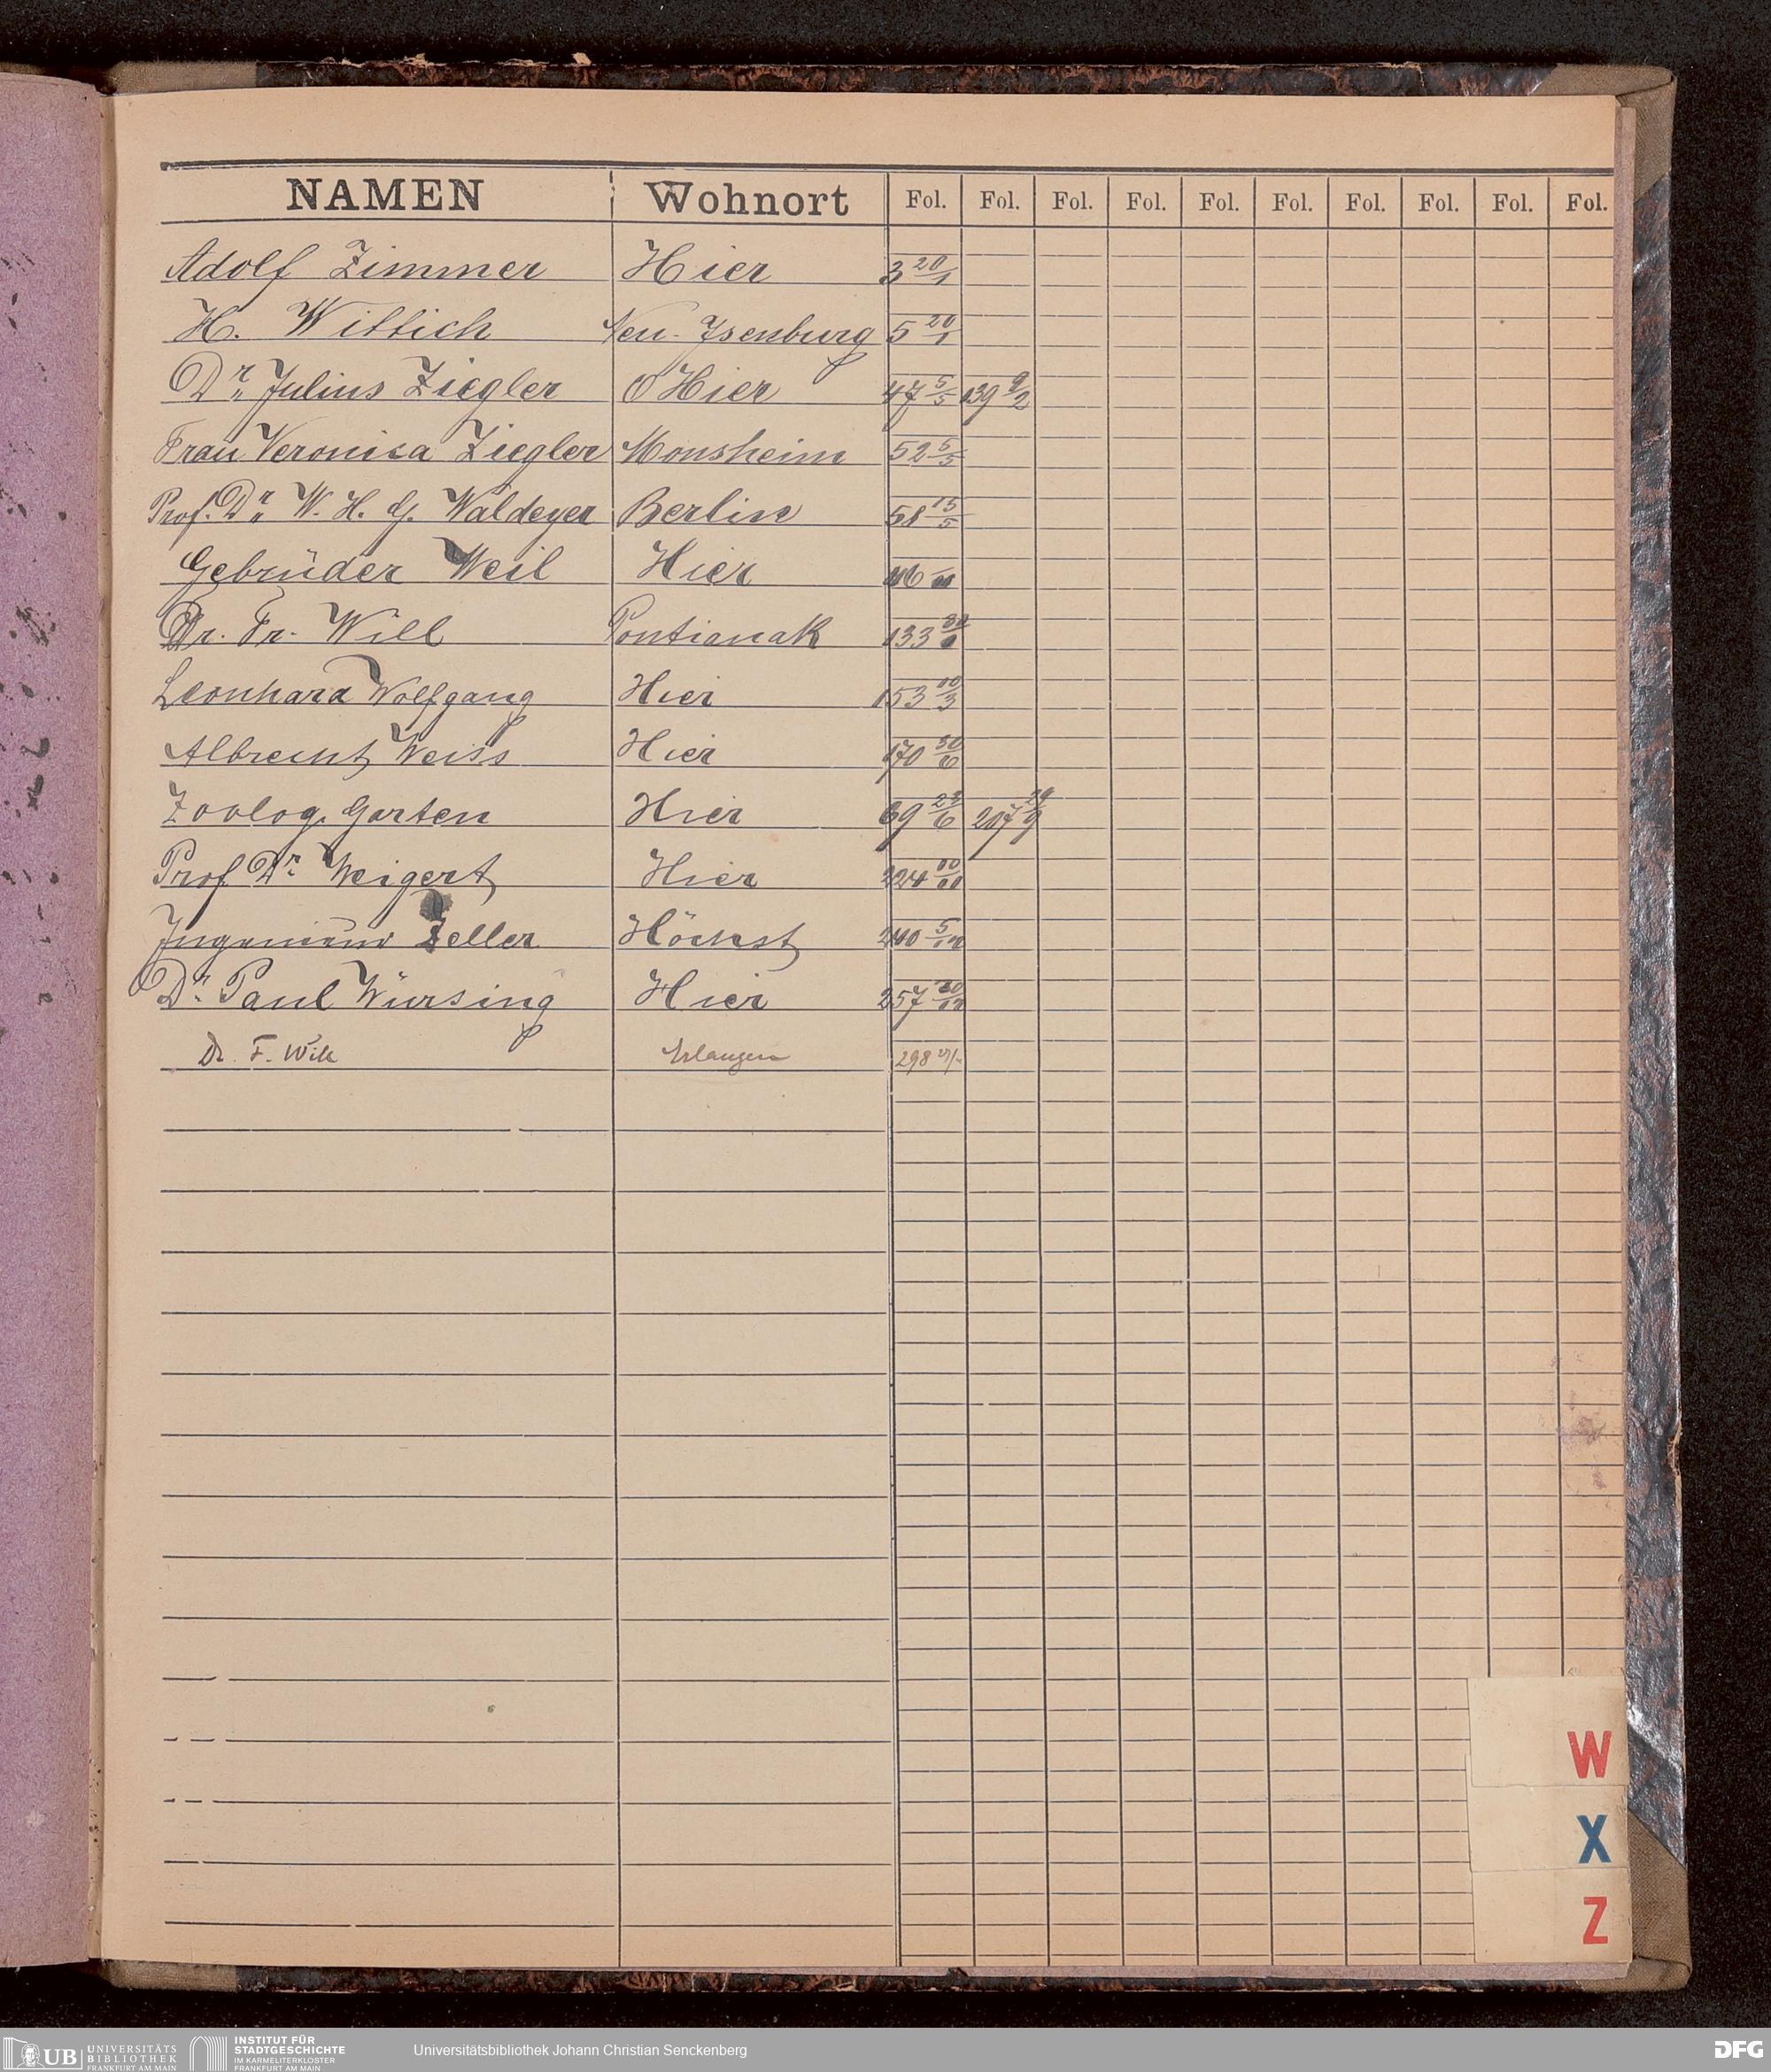 NAMEN Wohnort Fol. Fol. Fol. Fol. Fol. Fol. Fol. Fol. Fol. Fol.
Adolf Zimmer Hier 3 20/1
H. Wittich Neu-Isenburg 5 20/1
Dr. Julius Ziegler Hier 47 5/5 139 9/2
Frau Veronica Ziegler Monsheim 52 5/5
Prof. Dr. W. H. G. Waldeyer Berlin 58 15/5
Gebrüder Weil Hier
Dr. Fr. Will Pontianak 133
Leonhard Wolfgang Hier 153 10/3
Albrecht Weiss Hier 170 30/6
Zoolog. Garten Hier 69 23/6 207 29/9
Prof. Dr. Weigert Hier 224
Ingenieur Zeller Höchst 240
Dr. Paul Würsing Hier 257
Dr. F. Will Erlangen 298
W
X
Z
UB UNIVERSITÄTS
BIBLIOTHEK
FRANKFURT AM MAIN
INSTITUT FÜR
STADTGESCHICHTE
IM KARMELITERKLOSTER
FRANKFURT AM MAIN
Universitätsbibliothek Johann Christian Senckenberg
DFG